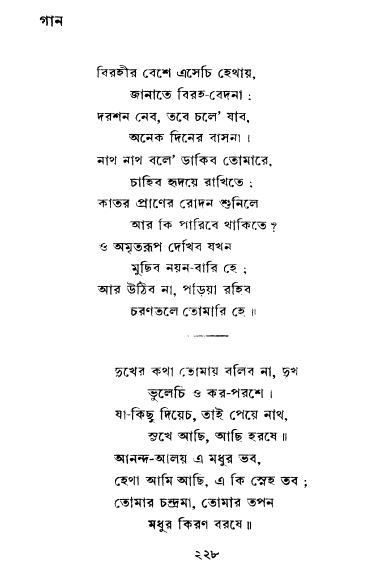 গান
বিরহীর বেশে এসেচি হেথায়,
জানাতে বিরহ-বেদনা :
দরশন নেব, তবে চলে' যাব,
অনেক দিনের বাসনা।
নাথ নাথ বলে' ডাকিব তোমারে,
চাহিব হৃদয়ে রাখিতে ;
কাতর প্রাণের রোদন শুনিলে
আর কি পারিবে থাকিতে ?
ও অমৃতরূপ দেখিব যখন
মুছিব নয়ন-বারি হে ;
আর উঠিব না, পড়িয়া রহিব
চরণতলে তোমারি হে॥
দুখের কথা তোমায় বলিব না, দুখ
ভুলেচি ও কর-পরশে।
যা-কিছু দিয়েচ, তাই পেয়ে নাথ,
সুখে আছি, আছি হরষে॥
আনন্দ-আলয় এ মধুর ভব,
হেথা আমি আছি, এ কি স্নেহ তব ;
তোমার চন্দ্রমা, তোমার তপন
মধুর কিরণ বরষে॥
২২৮